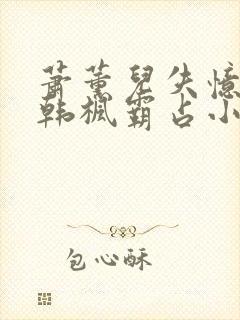 萧薰儿失憶
韩枫霸占小
包心酥